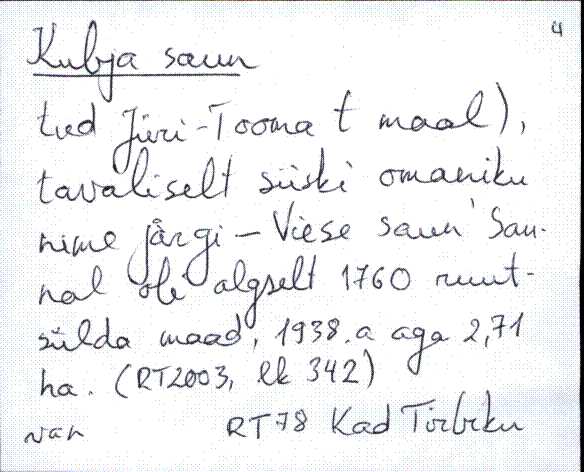 4
Kubja saun
tud Jüri-Tooma t maal),
tavaliselt siiski omaniku
nime järgi – Viese saun. Sau-
nal oli algselt 1760 ruut-
sülda maad, 1938.a aga 2,71
ha. (RT2003, lk 342)
van RT78 Kad Tirbiku